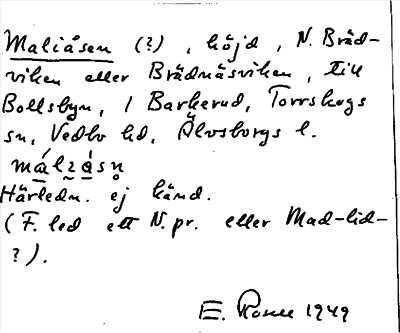 Maliåsen (?), höjd, N. Bräd-
viken eller Brädnäsviken, till
Bollsbyn, / Barkerud, Torrskogs
sn, Vedbo hd, Älvsborgs l.
málɩåsn̥
Härledn. ej känd.
(F. led ett N.pr. eller Mad-lid-
?).
E. Rosell 1949